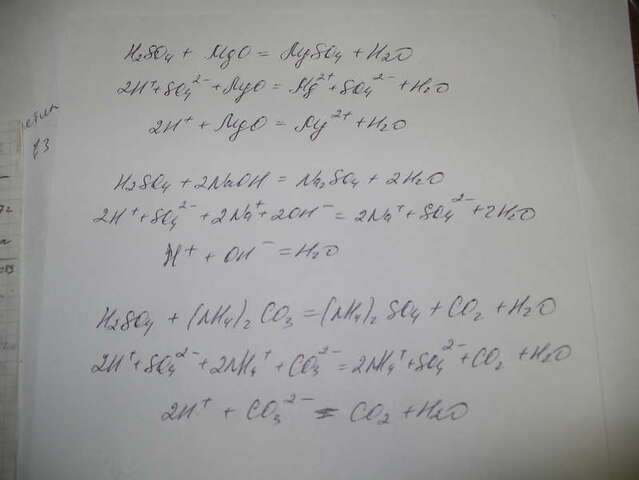 H₂SO₄ + MgO = MgSO₄ + H₂O
2H⁺ + SO₄²⁻ + MgO = Mg²⁺ + SO₄²⁻ + H₂O
2H⁺ + MgO = Mg²⁺ + H₂O
H₂SO₄ + 2NaOH = Na₂SO₄ + 2H₂O
2H⁺ + SO₄²⁻ + 2Na⁺ + 2OH⁻ = 2Na⁺ + SO₄²⁻ + 2H₂O
H⁺ + OH⁻ = H₂O
H₂SO₄ + (NH₄)₂CO₃ = (NH₄)₂SO₄ + CO₂ + H₂O
2H⁺ + SO₄²⁻ + 2NH₄⁺ + CO₃²⁻ = 2NH₄⁺ + SO₄²⁻ + CO₂ + H₂O
2H⁺ + CO₃²⁻ = CO₂ + H₂O